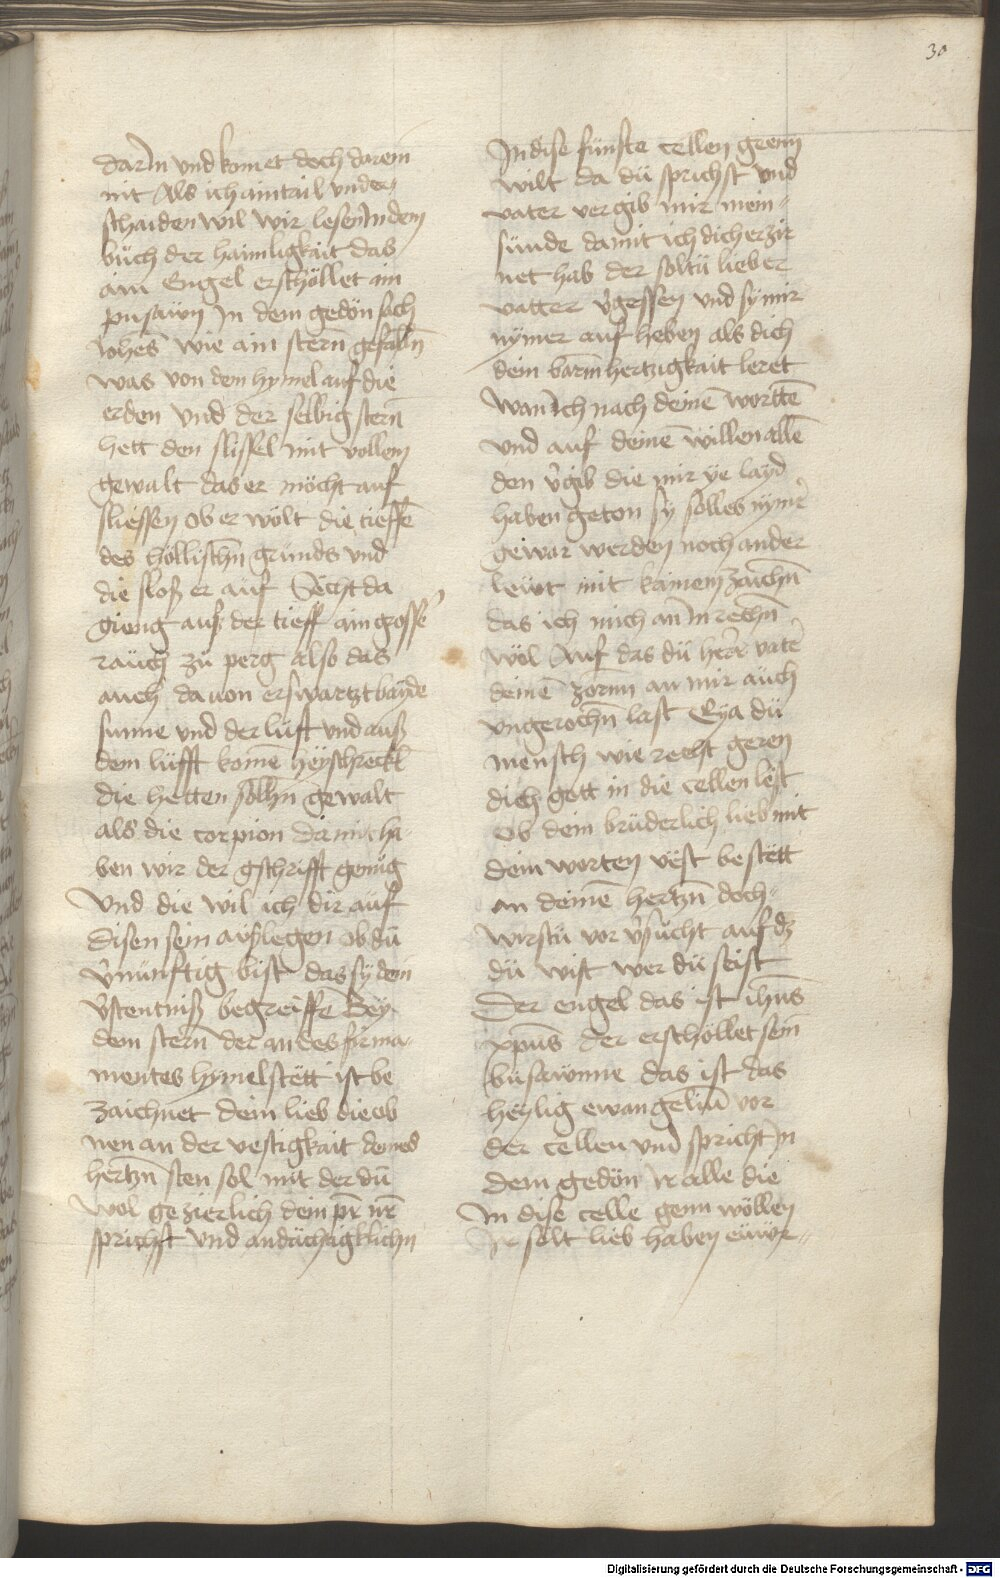 30
darIn vnd komet doch darein
nit Als ich ain tail vnder
schaiden wil wir lesen In dem
bůch der haimligkait das
ain Engel erschöllet ain
pusaẅn In dem gedön sach
Iohes̄ wie ain stern̄ gefalln̄
was von dem hymel auf die
erden vnd der selbig stern̄
hett den slissel mit vollem
gewalt das er möcht auf
sliessen ob er wölt die tieffe
des höllischn̄ grunds vnd
die sloß er auf Secht da
gieng auß der tieff ain grosse
rauch zu perg also das
auch dauon erswartzt bayde
sunne vnd der luft vnd auß
dem lufft komē heyschreckn̄
die hetten sollichn̄ gewalt
als die corpion da mit ha-
ben wir der gschrifft genůg
Vnd die wil ich dir auf
disen sein außlegen ob dů
v̄nunftig bist das sy dein
v̄stentniß begreiffe Bey
dem stern̄ der an des firma-
mentes hymel stett ist be
zaichnet dein lieb die ob
nen an der vestigkait deines
hertzn̄ sten sol mit der du
wol gezierlich dein pr̄ nr̄
sprichst vnd andächtigklichn̄
In dise fünfte cellen geenn
wilt da dů sprichst vnd
vater vergib mir mein-
sünde damit ich dich erzir
net hab der soltů lieber
vatter v̄gessen vnd sy mir
nymer auf heben als dich
dein barm̄hertzigkait leret
Wan̄ ich nach deinē wortē
vnd auf deinē willen allē
den v̄gib die mir ye layd
haben geton sy solles nymr̄
gewar werden noch ander
leüt mit kainem zaichn̄
das ich mich an In rechn̄
wöl Auf das dů herr vatr̄
deinē zorn̄ an mir auch
vngerochn̄ last Eya dů
mensch wie recht geren
dich gott in die cellen lest
Ob dein bruderlich lieb mit
dein worten vest bestett
an deinē hertzn̄ doch-
wirstu vor v̄sůcht auf dz
dů wist wer dů seist
Der engel das ist ihūs
xpūs der erschöllet sein
busaẅnne das ist das
heylig ewangeliū vor
der cellen vnd spricht In
dem gedön Ir alle die
In dise celle genn wöllen
Ir solt lieb haben eẅer-
Digitalisierung gefördert durch die Deutsche Forschungsgemeinschaft - DFG